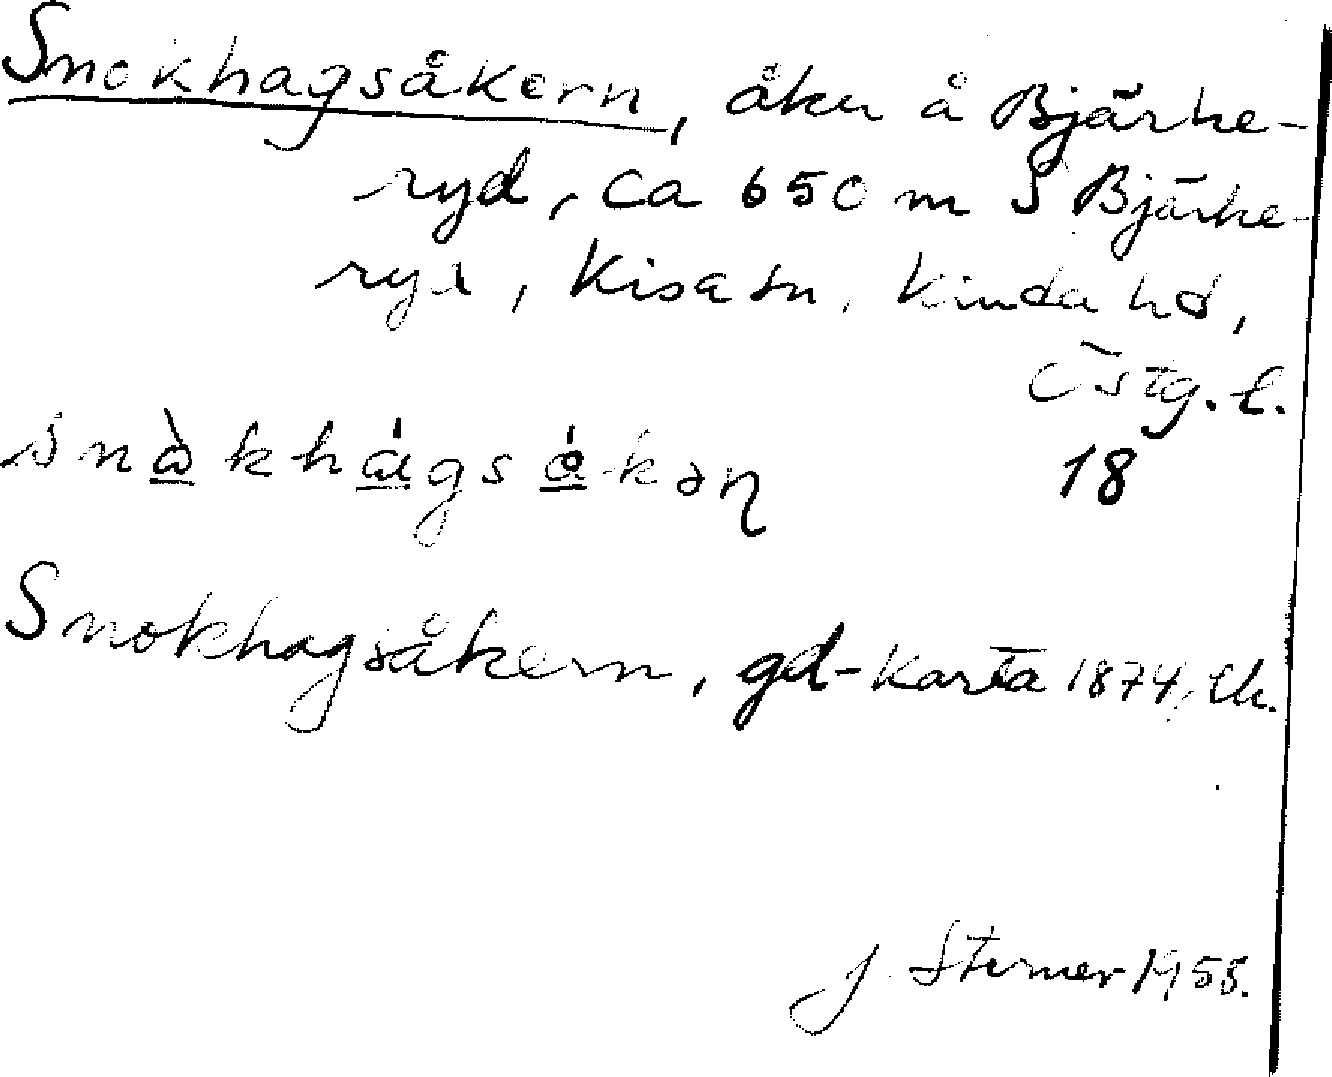 Snokhagsåkern, åker å Bjärke-
ryd, ca 650 m S Bjärke-
ryd, Kisa sn, Kinda hd,
Östg. l.
snὰkhágsåkəɳ 18
Snokhagsåkern, gd-karta 1874, Ch.
J. Sterner 1955.